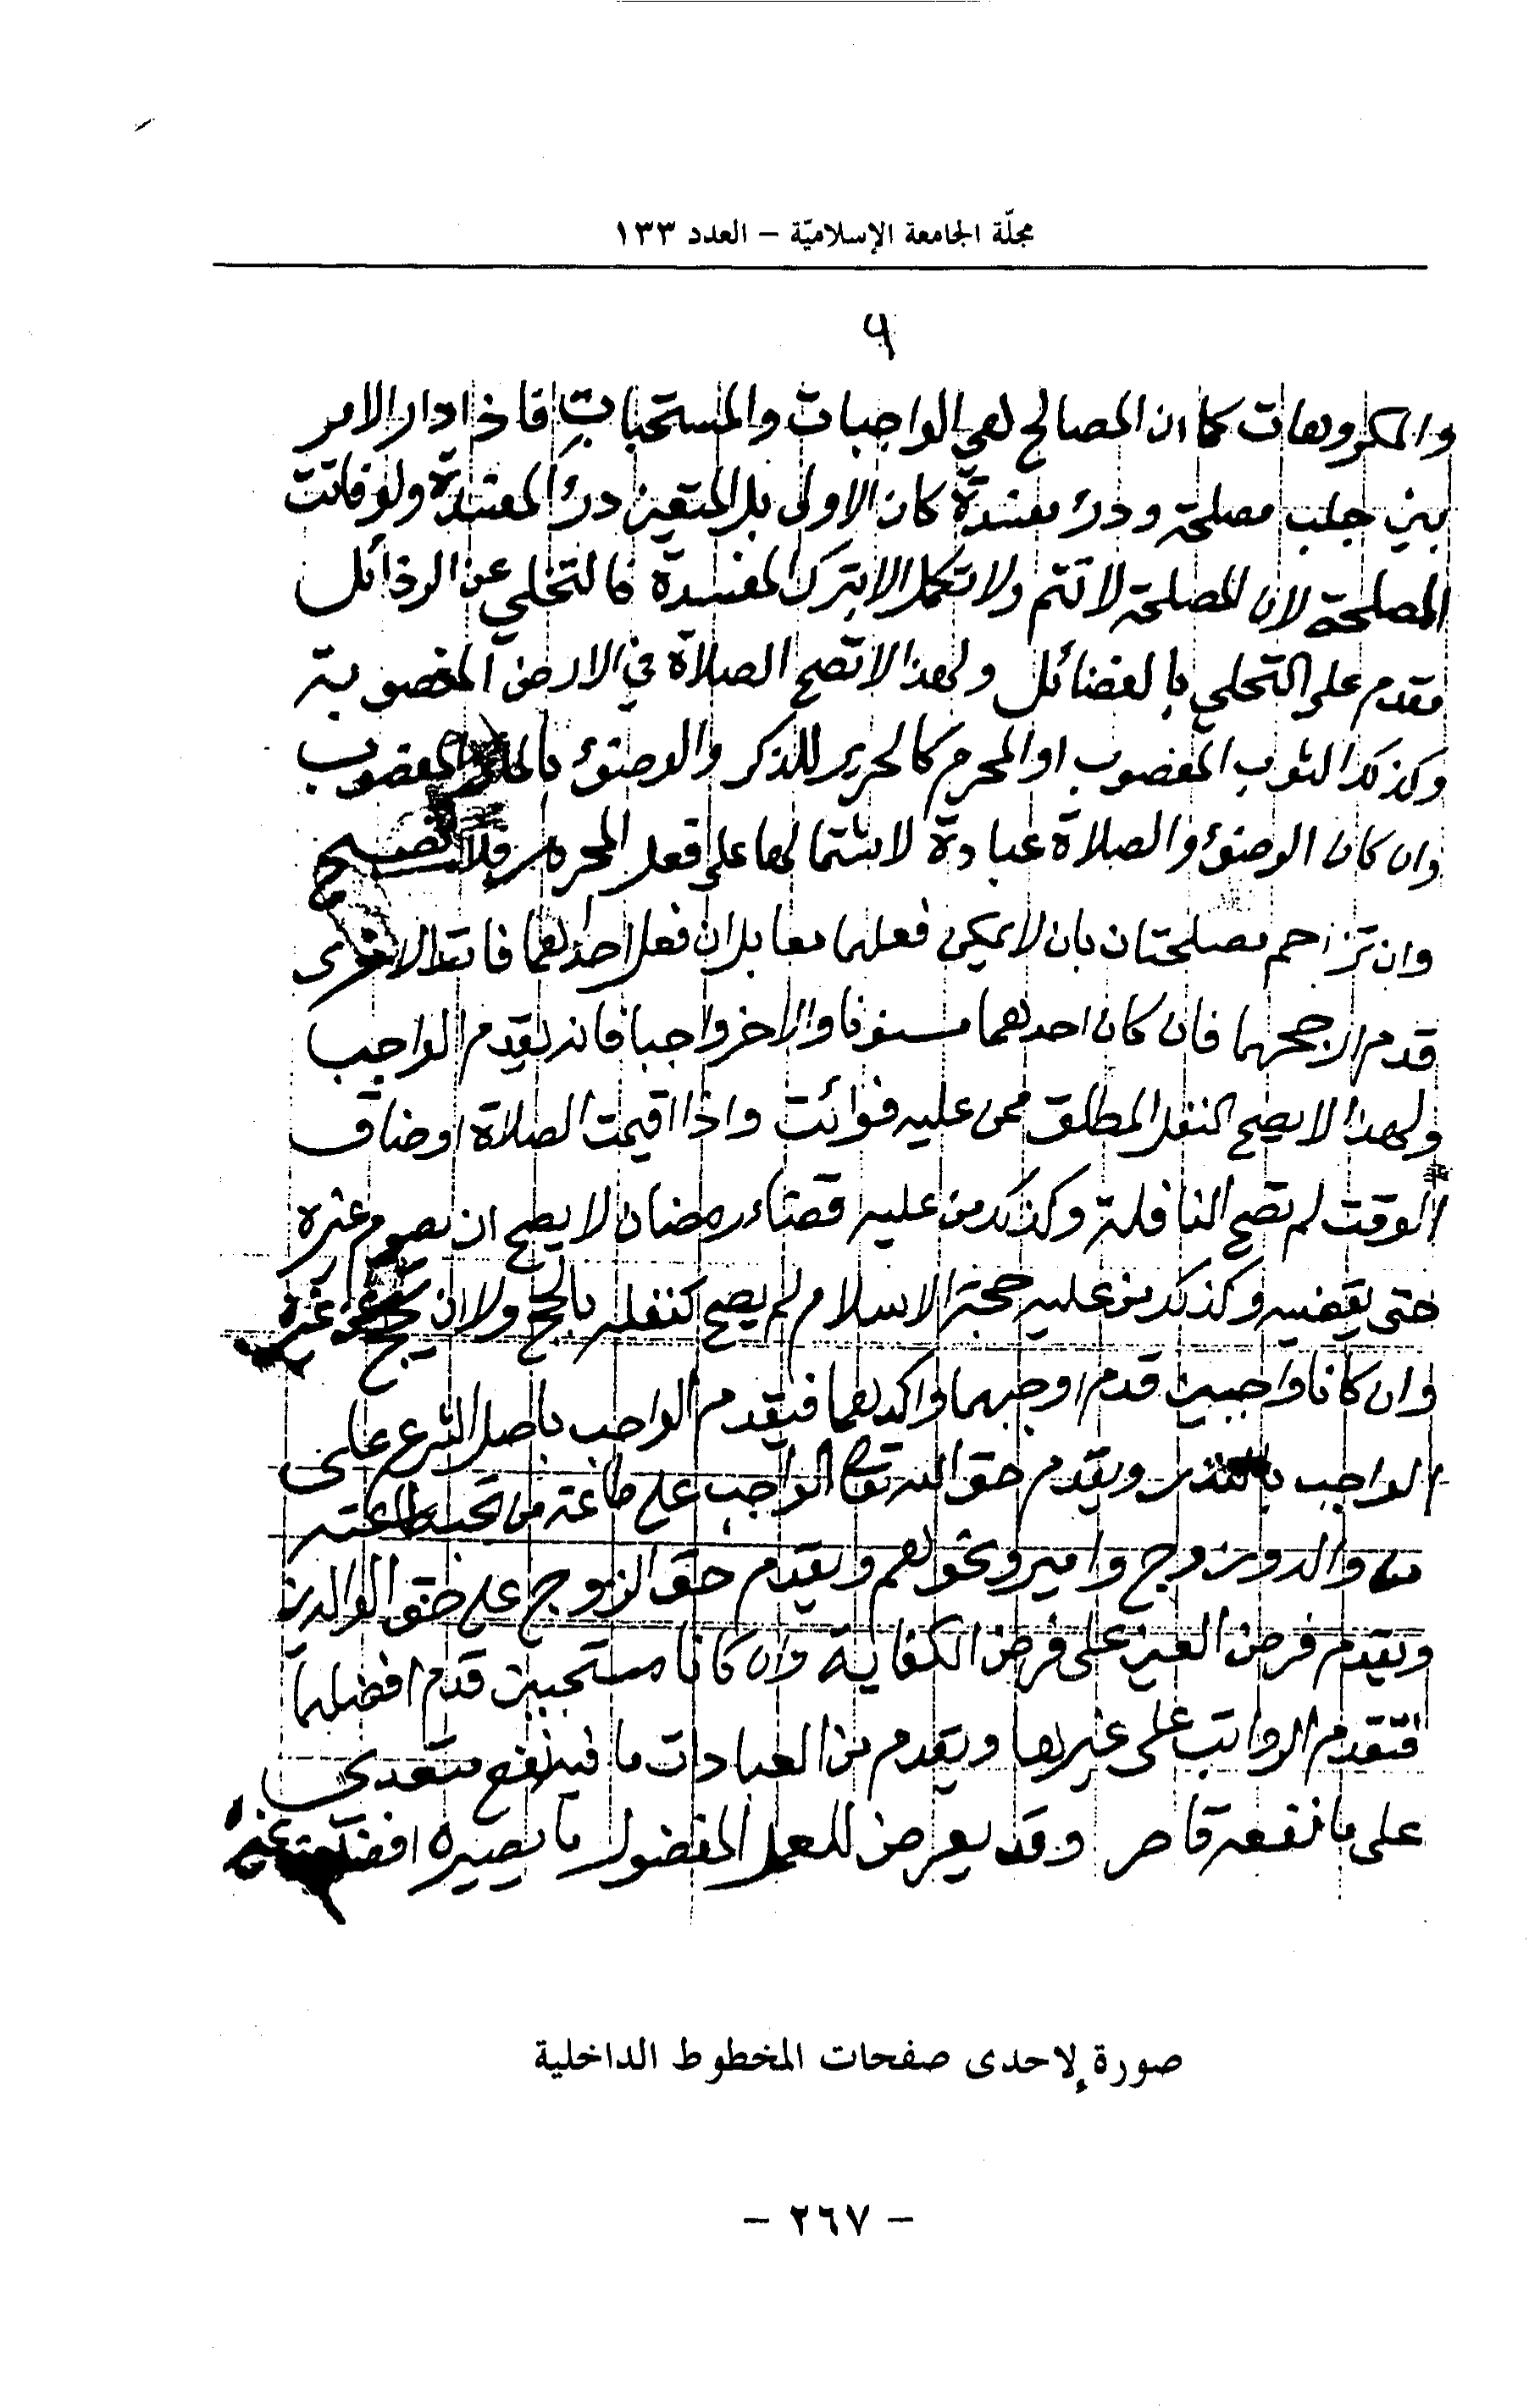 مجلّة الجامعة الإسلاميّة – العدد ١٣٣
٩
والمكروهات كما ان المصالح هي الواجبات والمستحبات فاذا دار الامر
بين جلب مصلحة ودرء مفسدة كان الاولى بل المتعين درء المفسدة ولو فاتت
المصلحة لان المصلحة لا تتم ولا تكمل الا بترك المفسدة فالتخلي عن الرذائل
مقدم على التحلي بالفضائل ولهذا لا تصح الصلاة في الارض المغصوبة
وكذلك الثوب المغصوب او المحرم كالحرير للذكر والوضوء بالماء المغصوب
وان كان الوضوء والصلاة عبادة لاشتمالها على فعل المحرم فلا تصح
وان تزاحم مصلحتان بان لا يمكن فعلهما معا بل ان فعل احداهما فاتت الاخرى
قدم ارجحهما فان كان احدهما مسنونا والاخر واجبا فانه يقدم الواجب
ولهذا لا يصح النفل المطلق ممن عليه فوائت واذا اقيمت الصلاة او ضاق
الوقت لم تصح النافلة وكذلك من عليه قضاء رمضان لا يصح ان يصوم غيره
حتى يقضيه وكذلك من عليه حجة الاسلام لم يصح تنفله بالحج ولا ان يحج عن غيره
وان كانا واجبين قدم اوجبهما واكدهما فيقدم الواجب باصل الشرع على
الواجب بالنذر ويقدم حق الله تعالى الواجب على طاعة من تجب طاعته
من والد وزوج وامير ونحوهم ويقدم حق الزوج على حق الوالدين
ويقدم فرض العين على فرض الكفاية وان كانا مستحبين قدم افضلهما
فتقدم الرواتب على غيرها ويقدم من العبادات ما فيه نفع متعدي
على ما نفعه قاصر وقد يعرض للعمل المفضول ما يصيره افضل من غيره
صورة لإحدى صفحات المخطوط الداخلية
– ٢٦٧ –